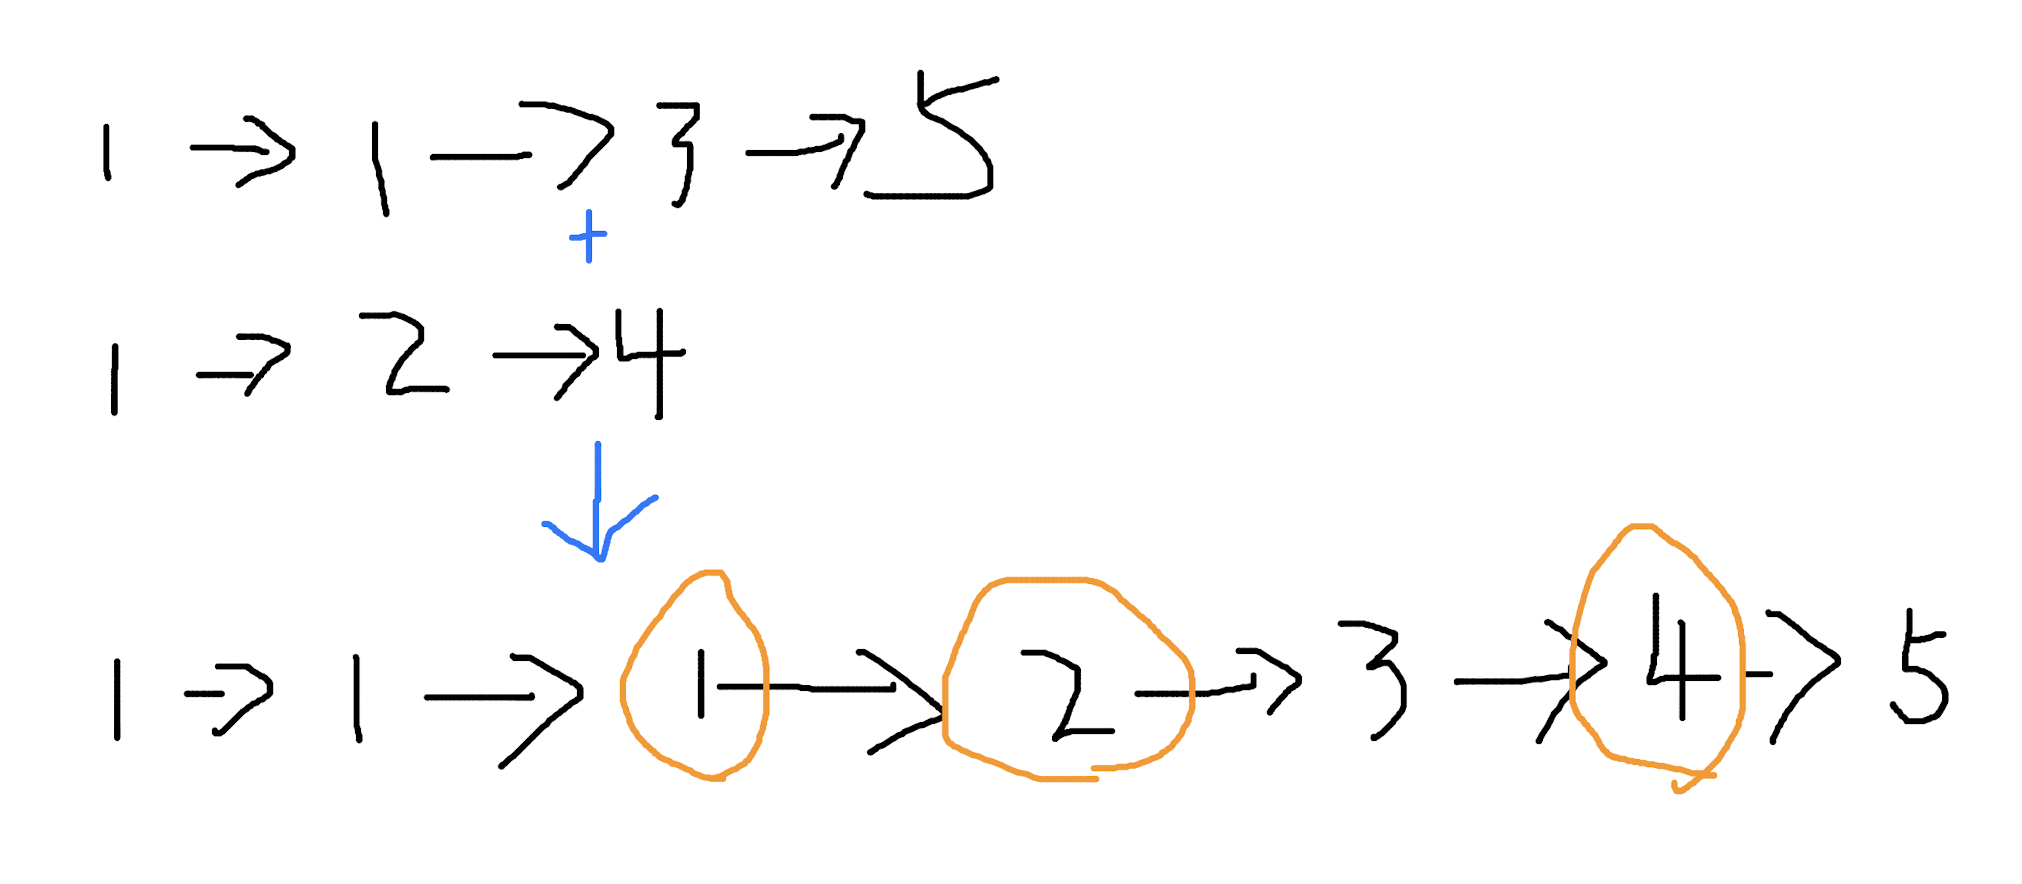 1 → 1 → 3 → 5
+
1 → 2 → 4
↓
1 → 1 → 1 → 2 → 3 → 4 → 5